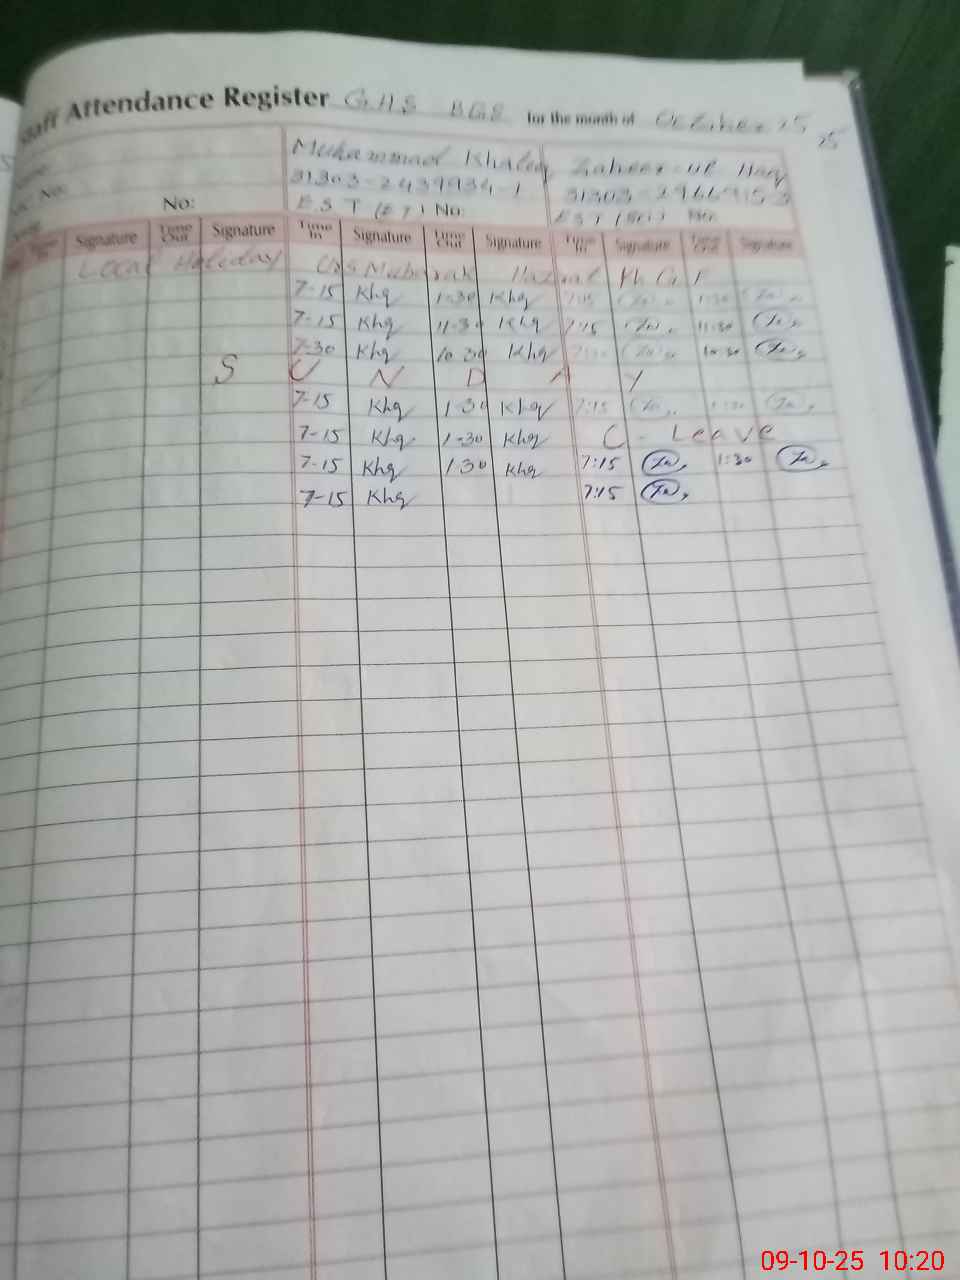 Staff Attendance Register GHS BGS for the month of October 25
25
Muhammad Khaleeq Zaheer-ul-Haq
31303-2439934-1 31303-2966915-3
No: E.S.T (E.T) No: EST (Sci) No:
In Signature Time Out Signature Time In Signature Time Out Signature Time In Signature Time Out Signature
Local Holiday Urs Mubarak Hazrat Kh. G. F
7-15 Khq 1-30 Khq 7:15 1:30
7-15 Khq 11-30 Khq 7:15 11:30
7-30 Khq 10-30 Khq 7:30 10:30
S U N D A Y
7-15 Khq 1-30 Khq 7:15 1:30
7-15 Khq 1-30 Khq C - Leave
7-15 Khq 1-30 Khq 7:15 1:30
7-15 Khq 7:15
09-10-25 10:20